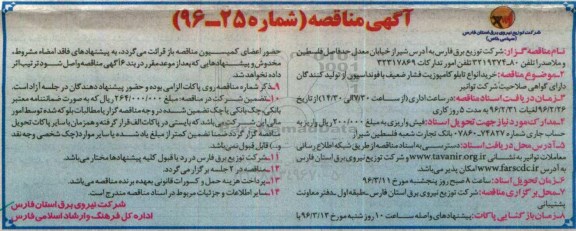 آگهی مناقصه (شماره ۲۵-۹۶)
شرکت توزیع نیروی برق استان فارس
(سهامی خاص)
نام مناقصه گزار: شرکت توزیع برق فارس به آدرس شیراز خیابان معدل حدفاصل فلسطین
و ملاصدرا تلفن ۸۰-۳۲۱۹۳۷۴ تلفن امور تدارکات ۳۲۳۱۷۸۶۹
۲-موضوع مناقصه: خرید انواع تابلو کامپوزیت فشار ضعیف با فونداسیون از تولید کنندگان
دارای گواهی صلاحیت شرکت توانیر
۳-زمان دریافت اسناد مناقصه: در ساعت اداری (از ساعت ۷/۳۰ الی ۱۴/۳۰) از تاریخ
۹۶/۲/۲۶ لغایت ۹۶/۲/۳۱ به مدت ۵ روز کاری
۴-مدارک مورد نیاز جهت تحویل اسناد: فیش واریزی به مبلغ ۲۰۰/۰۰۰ ریال واریز به
حساب جاری شماره ۰۷۸۶۰۰۷۴۸۲۷ بانک تجارت شعبه فلسطین شیراز
۵-آدرس محل دریافت اسناد: دسترسی به اسناد مناقصه از طریق شبکه اطلاع رسانی
معاملات توانیر به نشانی www.tavanir.org.ir و شرکت توزیع نیروی برق استان فارس
به آدرس www.farsedc.ir امکان پذیر می باشد.
۶-زمان تحویل اسناد: ساعت ۸ صبح روز پنجشنبه مورخ ۹۶/۳/۱۱
۷-محل برگزاری مناقصه: شرکت توزیع نیروی برق استان فارس-طبقه اول-دفتر معاونت
پشتیبانی
۸-زمان بازگشایی پاکات: پیشنهادهای واصله ساعت ۱۰ روز شنبه مورخ ۹۶/۳/۱۳ با
حضور اعضای کمیسیون مناقصه باز قرائت می گردد، به پیشنهادهای فاقد امضاء مشروط،
مخدوش و پیشنهادهایی که بعد از موعد مقرر در بند ۶ آگهی مناقصه واصل شود ترتیب اثر
داده نخواهد شد.
۹-ذکر شماره مناقصه روی پاکات الزامی بوده و حضور پیشنهاد دهندگان در جلسه آزاد است.
۱۰-تضمین شرکت در مناقصه: به مبلغ ۲۶۴/۰۰۰/۰۰۰ ریال که به صورت ضمانتنامه معتبر
بانکی، چک بانکی یا چک تضمین شده در وجه مناقصه گزار
مالی این شرکت می باشد که بایستی در پاکت الف قرار گرفته و همزمان با سایر پاکات تحویل
مناقصه گزار گردد ضمناً تضمین کمتر از مبلغ یاد شده یا سایر موارد (چک شخصی وجه نقد
و...) قابل قبول نمی باشد.
۱۱-شرکت توزیع برق فارس در رد یا قبول کلیه پیشنهادها مختار می باشد.
۱۲-مناقصه در ۲ جلسه برگزار می گردد.
۱۳-پرداخت هزینه حمل و کسورات قانونی بعهده برنده مناقصه می باشد.
۱۴-سایر اطلاعات و جزئیات مربوط در اسناد مناقصه مندرج است.
شرکت نیروی برق استان فارس
اداره کل فرهنگ و ارشاد اسلامی فارس